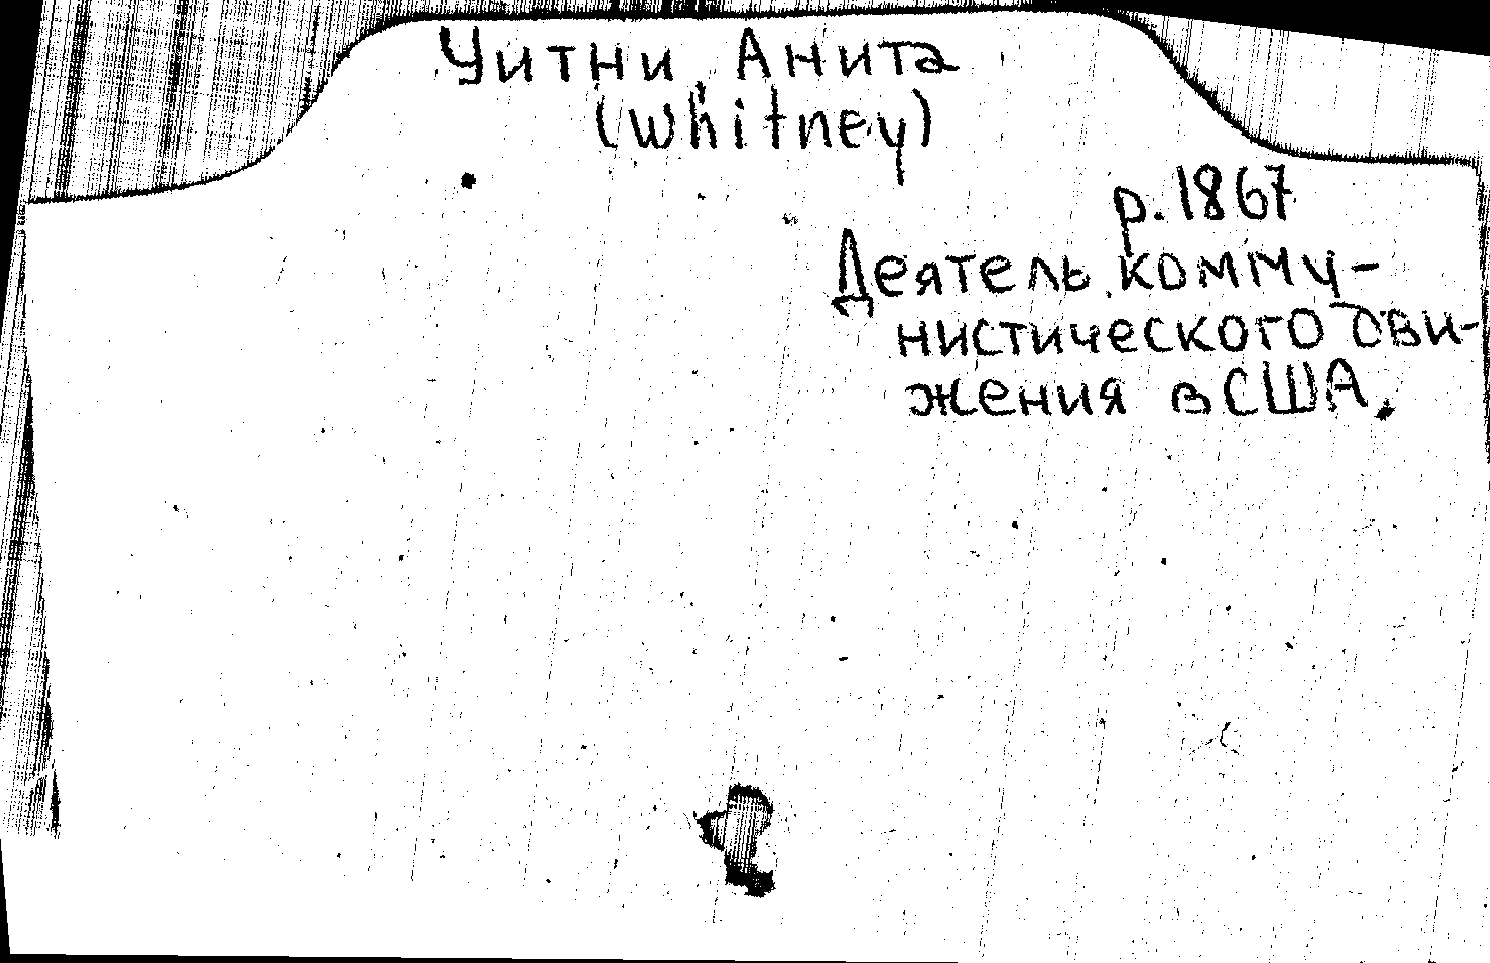 Уитни, Анита
(Whitney)
р. 1867
Деятель комму-
нистического дви-
жения в США.